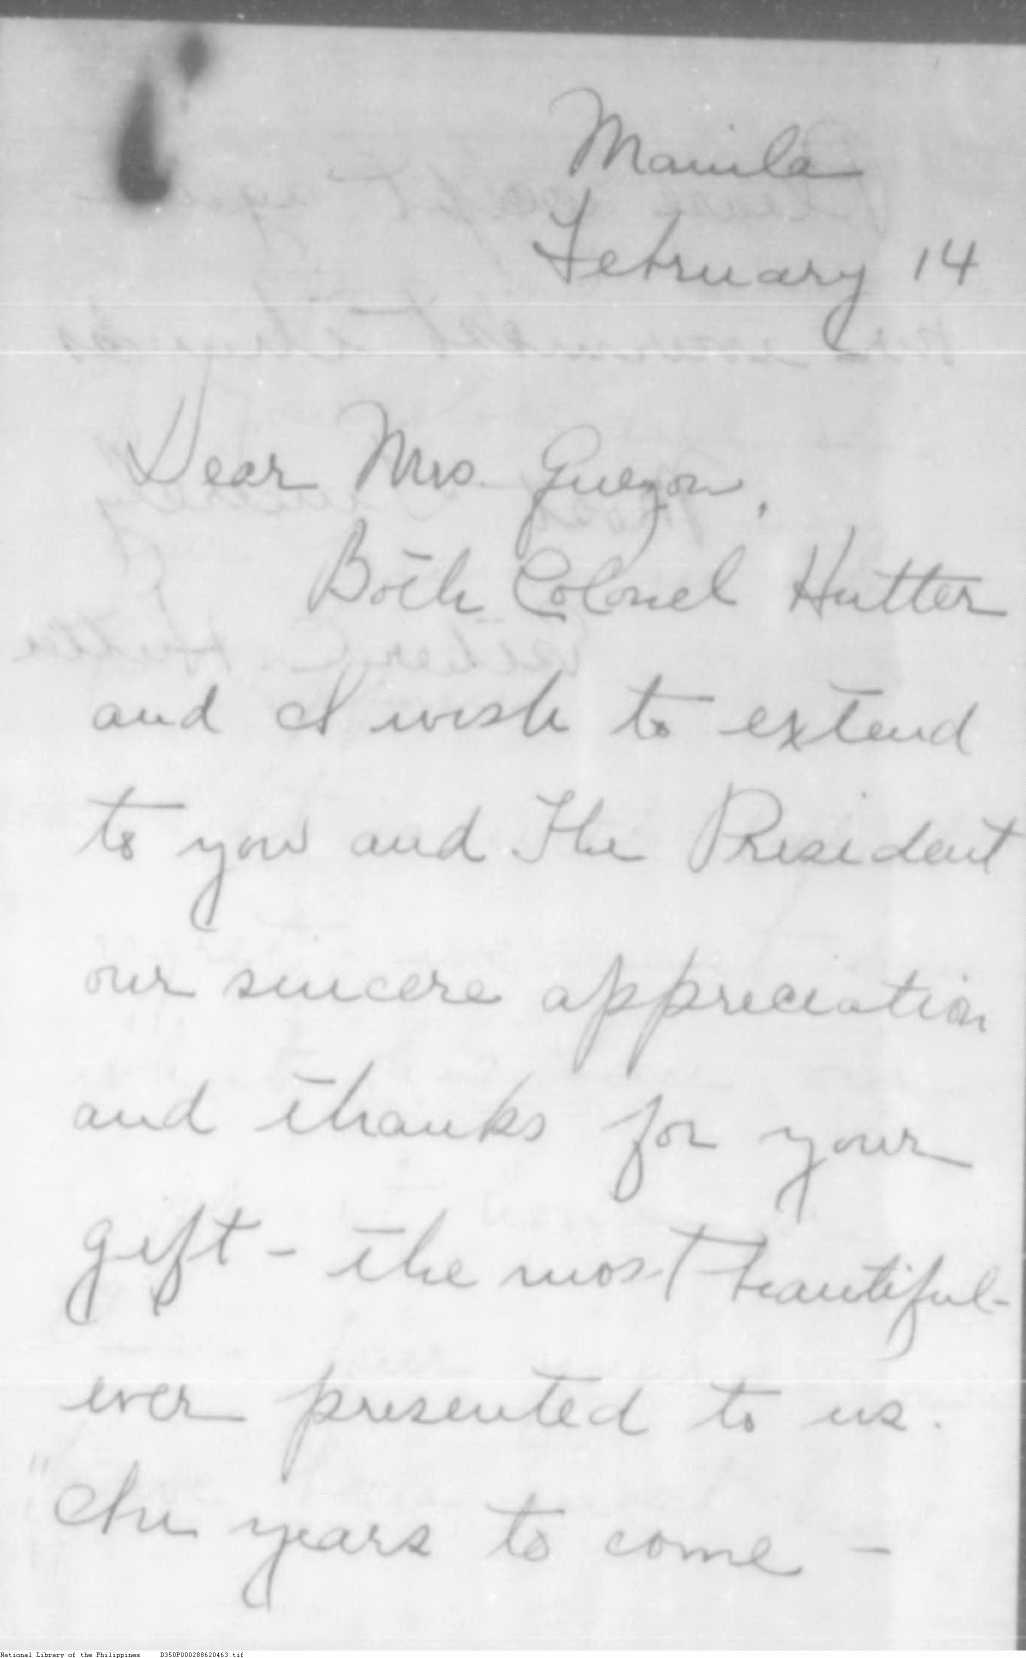 Manila
February 14
Dear Mrs. Quezon,
Both Colonel Hutter
and I wish to extend
to you and The President
our sincere appreciation
and thanks for your
gift - the most beautiful -
ever presented to us.
"In years to come -
National Library of the Philippines D350P000288620463.tif